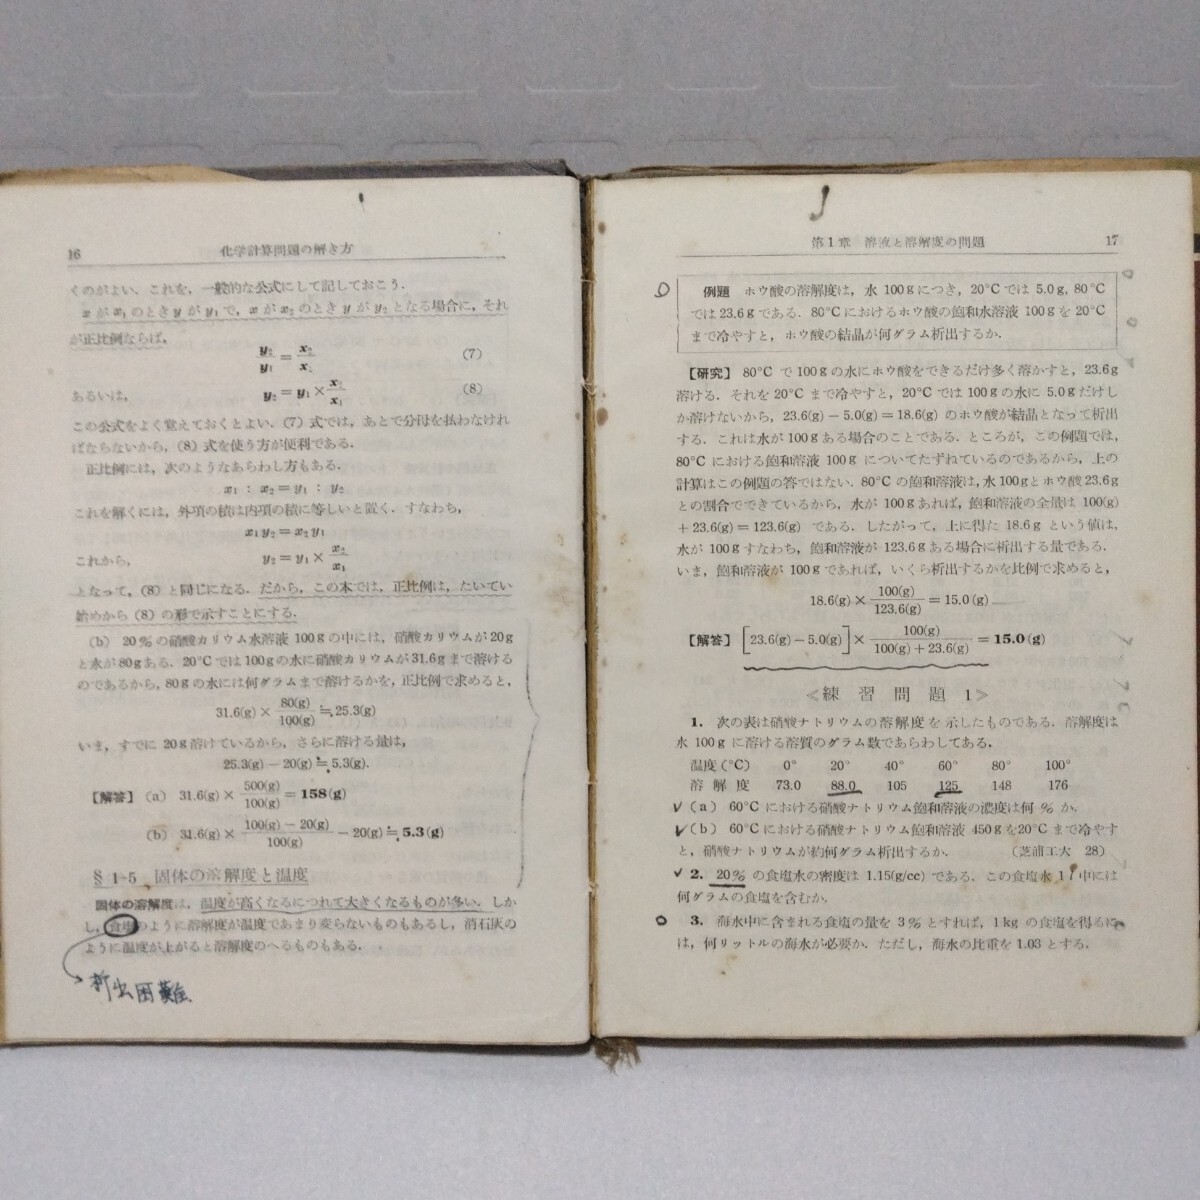 16 化学計算問題の解き方
くのがよい．これを，一般的な公式にして記しておこう．
x が x₁ のとき y が y₁ で，x が x₂ のとき y が y₂ となる場合に，それ
が正比例ならば，
y₂/y₁ = x₂/x₁ (7)
あるいは， y₂ = y₁ × x₂/x₁ (8)
この公式をよく覚えておくとよい．(7) 式では，あとで分母を払わなけれ
ばならないから，(8) 式を使う方が便利である．
正比例には，次のようなあらわし方もある．
x₁ : x₂ = y₁ : y₂
これを解くには，外項の積は内項の積に等しいと置く．すなわち，
x₁y₂ = x₂y₁
これから， y₂ = y₁ × x₂/x₁
となって，(8) と同じになる．だから，この本では，正比例は，たいてい
始めから (8) の形で示すことにする．
(b) 20％の硝酸カリウム水溶液 100g の中には，硝酸カリウムが 20g
と水が 80g ある．20°C では 100g の水に硝酸カリウムが 31.6g まで溶ける
のであるから，80g の水には何グラムまで溶けるかを，正比例で求めると，
31.6(g) × 80(g)/100(g) ≒ 25.3(g)
いま，すでに 20g 溶けているから，さらに溶ける量は，
25.3(g) − 20(g) ≒ 5.3(g).
【解答】 (a) 31.6(g) × 500(g)/100(g) = 158(g)
(b) 31.6(g) × 100(g) − 20(g)/100(g) − 20(g) ≒ 5.3(g)
§ 1-5 固体の溶解度と温度
固体の溶解度は，温度が高くなるにつれて大きくなるものが多い．しか
し，食塩のように溶解度が温度であまり変らないものもあるし，消石灰の
ように温度が上がると溶解度のへるものもある．
析出困難
第1章 溶液と溶解度の問題 17
例題 ホウ酸の溶解度は，水 100g につき，20°C では 5.0g，80°C
では 23.6g である．80°C におけるホウ酸の飽和水溶液 100g を 20°C
まで冷やすと，ホウ酸の結晶が何グラム析出するか．
【研究】 80°C で 100g の水にホウ酸をできるだけ多く溶かすと，23.6g
溶ける．それを 20°C まで冷やすと，20°C では 100g の水に 5.0g だけし
か溶けないから，23.6(g) − 5.0(g) = 18.6(g) のホウ酸が結晶となって析出
する．これは水が 100g ある場合のことである．ところが，この例題では，
80°C における飽和溶液 100g についてたずねているのであるから，上の
計算はこの例題の答ではない．80°C の飽和溶液は，水 100g とホウ酸 23.6g
との割合でできているから，水が 100g あれば，飽和溶液の全量は 100(g)
+ 23.6(g) = 123.6(g) である．したがって，上に得た 18.6g という値は，
水が 100g すなわち，飽和溶液が 123.6g ある場合に析出する量である．
いま，飽和溶液が 100g であれば，いくら析出するかを比例で求めると，
18.6(g) × 100(g)/123.6(g) = 15.0(g)
【解答】 [23.6(g) − 5.0(g)] × 100(g)/100(g) + 23.6(g) = 15.0(g)
≪練習問題1≫
1. 次の表は硝酸ナトリウムの溶解度を示したものである．溶解度は
水 100g に溶ける溶質のグラム数であらわしてある．
温度(°C) 0° 20° 40° 60° 80° 100°
溶解度 73.0 88.0 105 125 148 176
(a) 60°C における硝酸ナトリウム飽和溶液の濃度は何 ％ か．
(b) 60°C における硝酸ナトリウム飽和溶液 450g を 20°C まで冷やす
と，硝酸ナトリウムが約何グラム析出するか． (芝浦工大 28)
2. 20％ の食塩水の密度は 1.15(g/cc) である．この食塩水 1l 中には
何グラムの食塩を含むか．
3. 海水中に含まれる食塩の量を 3％ とすれば，1kg の食塩を得るに
は，何リットルの海水が必要か．ただし，海水の比重を 1.03 とする．